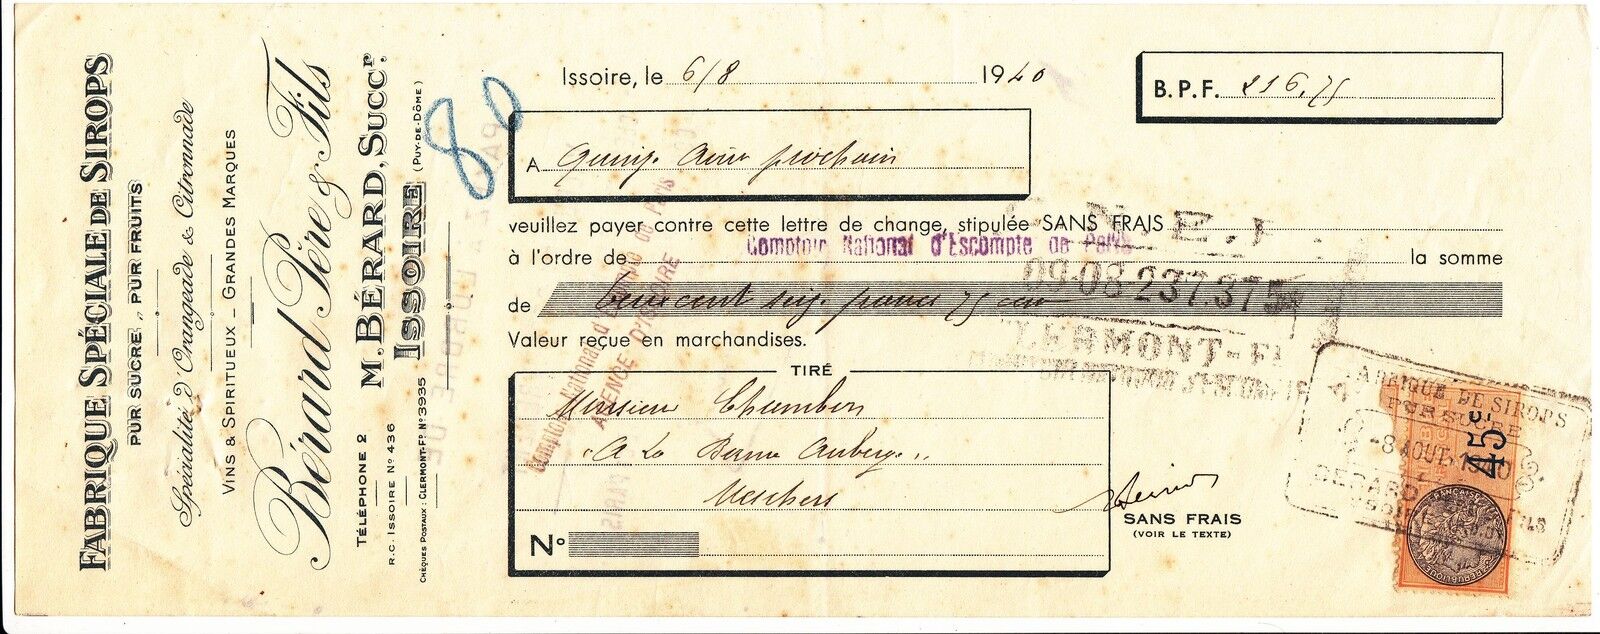 FABRIQUE SPÉCIALE DE SIROPS
PUR SUCRE „ PUR FRUITS
Spécialité d'Orangeade & Citronnade
VINS & SPIRITUEUX _ GRANDES MARQUES
Bérard Père & Fils
M. BÉRARD, SUCCr.
TÉLÉPHONE 2
ISSOIRE (PUY-DE-DÔME)
R.C. ISSOIRE No 436
CHÈQUES POSTAUX : CLERMONT-Fd No 3935
80
Issoire, le 6/8 1940
B.P.F. 216,75
A Quinze Août prochain
veuillez payer contre cette lettre de change, stipulée SANS FRAIS
à l'ordre de Comptoir National d'Escompte de Paris la somme
de cent seize francs 75
09-08-237.375
Valeur reçue en marchandises.
CLERMONT-F
TIRÉ
Monsieur Chambon
"A La Bonne Auberge"
Meschers
No
SANS FRAIS
(VOIR LE TEXTE)
Comptoir National d'Escompte de Paris
AGENCE D'ISSOIRE
FABRIQUE DE SIROPS
PUR SUCRE
-8 AOUT 1940
45c